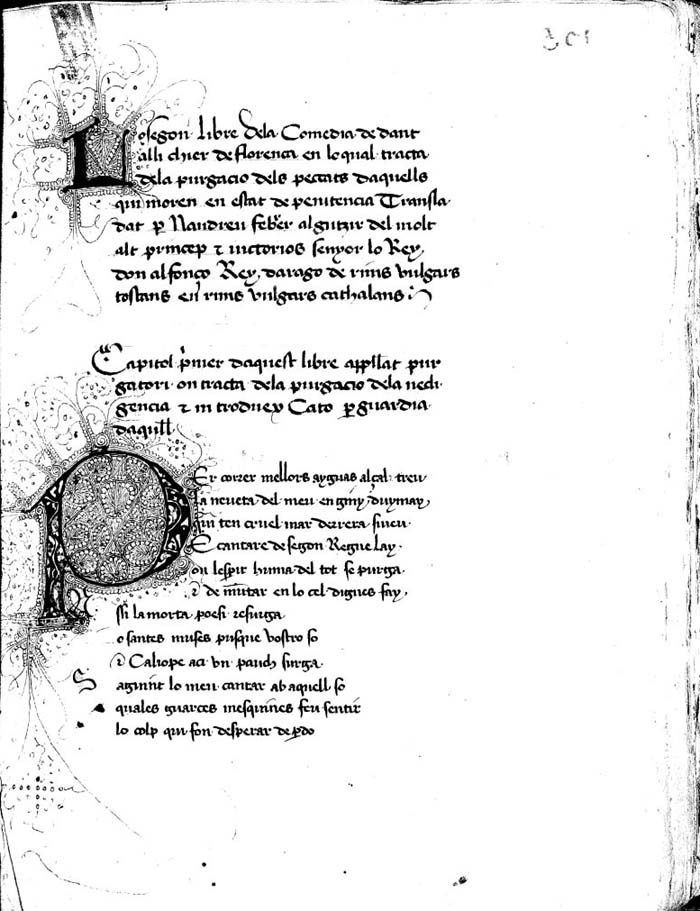 Lo segon libre dela Comedia de dant
alli chier de florença en lo qual tracta
dela purgacio dels peccats daquells
qui moren en estat de penitencia Transla
dat p Nandreu febrer algutzir del molt
alt princep τ uictorios senyor lo Rey
don alfonço Rey darago de rims vulgars
toscans en rims vulgars cathalans
Capitol pmer daquest libre appllat pur
gatori on tracta dela purgacio dela negli
gencia τ introduex Cato p guardia
daquill
PEr correr mellors ayguas alçal treu
la naueta del meu enginy duymay
qui ten cruel mar derrera si ueu
E cantare de segon Regne lay
on lespit huma del tot se purga
τ de muntar en lo cel dignes fay
Mssi la morta poesi resurga
o santes muses pusque vostro so
τ Caliope aci vn pauch surga
Saguint lo meu cantar ab aquell so
quales guarces mesquines feu sentir
lo colp qui fon desperar depdo